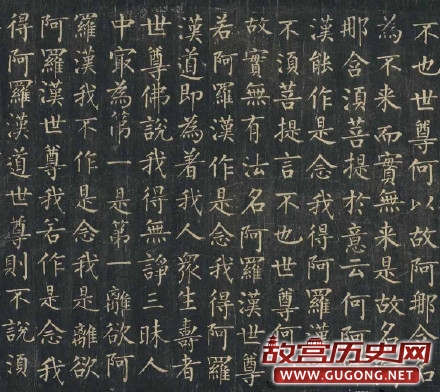 不也世尊何以故阿那含名
為不来而實無来是故名
那含須菩提於意云何阿
漢能作是念我得阿羅漢
不須菩提言不也世尊何
故實無有法名阿羅漢世尊
若阿羅漢作是念我得阿羅
漢道即為著我人衆生壽者
世尊佛說我得無諍三昧人
中冣為第一是第一離欲阿
羅漢我不作是念我是離欲
阿羅漢世尊我若作是念我
得阿羅漢道世尊則不說須
故宫历史网
WWW.GUGONG.NET